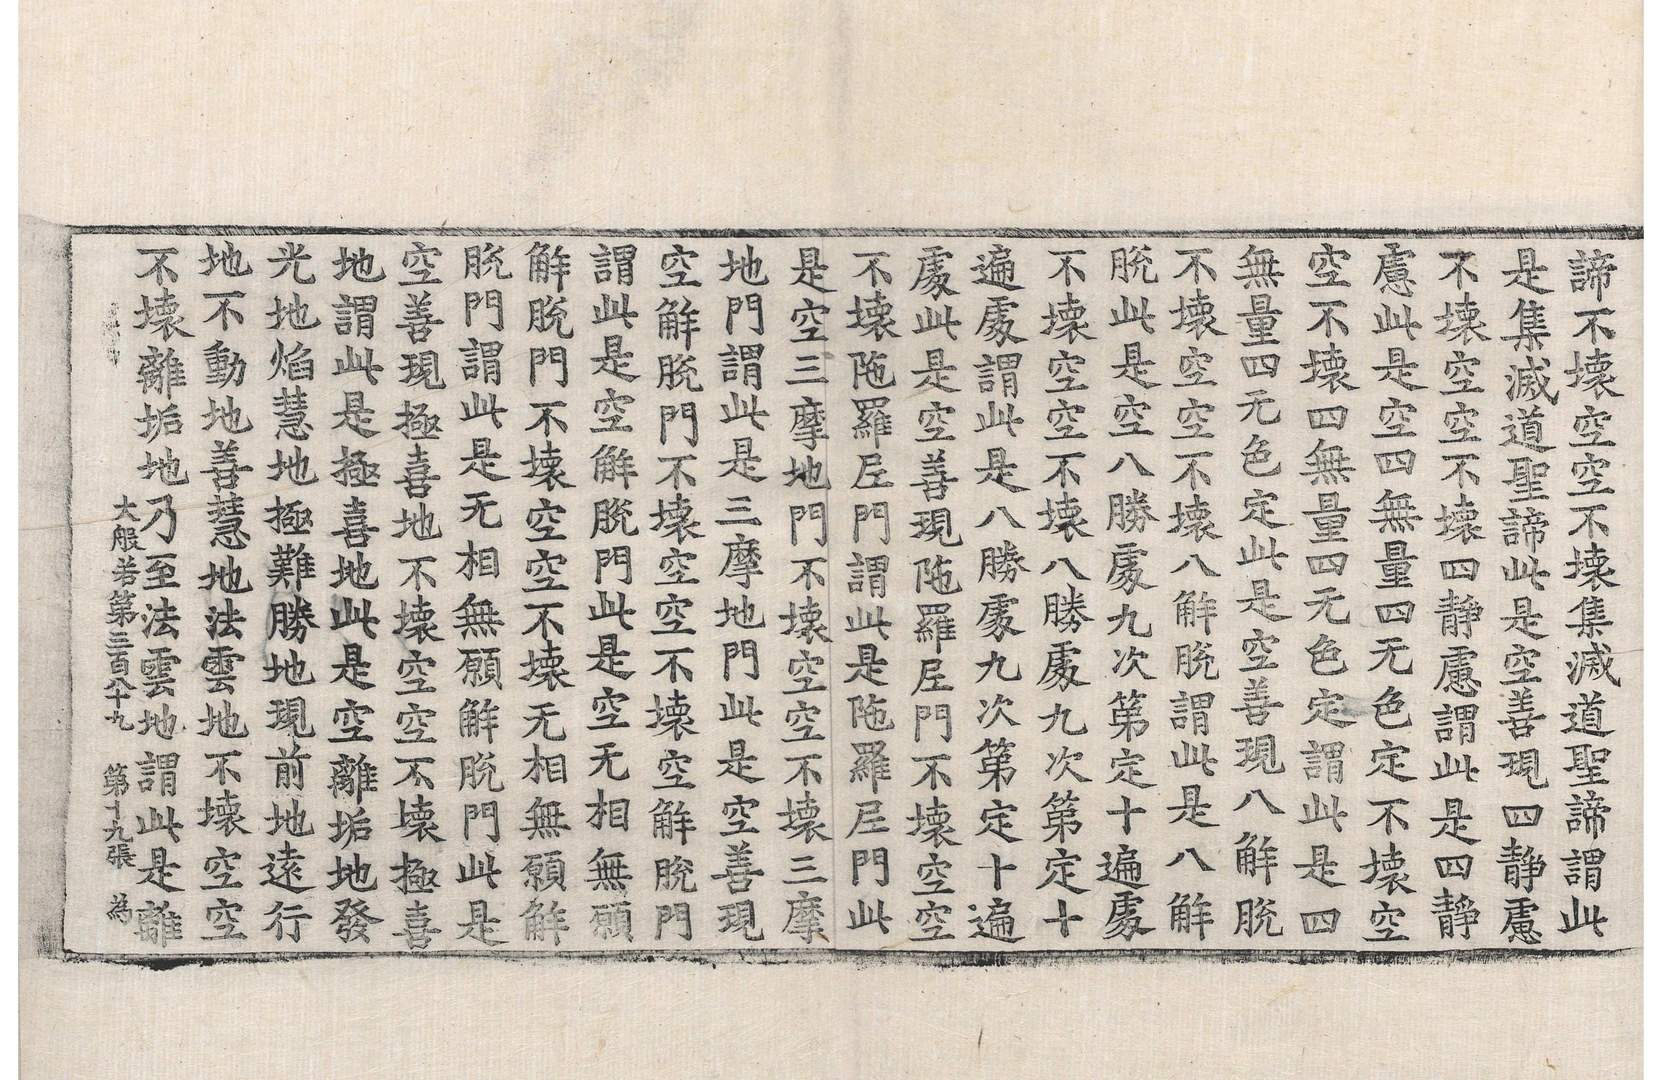 諦不壞空空不壞集滅道聖諦謂此
是集滅道聖諦此是空善現四靜慮
不壞空空不壞四靜慮謂此是四靜
慮此是空四無量四无色定不壞空
空不壞四無量四无色定謂此是四
無量四无色定此是空善現八解脫
不壞空空不壞八解脫謂此是八解
脫此是空八勝處九次第定十遍處
不壞空空不壞八勝處九次第定十
遍處謂此是八勝處九次第定十遍
處此是空善現陁羅尼門不壞空空
不壞陁羅尼門謂此是陁羅尼門此
是空三摩地門不壞空空不壞三摩
地門謂此是三摩地門此是空善現
空解脫門不壞空空不壞空解脫門
謂此是空解脫門此是空无相無願
解脫門不壞空空不壞无相無願解
脫門謂此是无相無願解脫門此是
空善現極喜地不壞空空不壞極喜
地謂此是極喜地此是空離垢地發
光地焰慧地極難勝地現前地遠行
地不動地善慧地法雲地不壞空空
不壞離垢地乃至法雲地謂此是離
大般若第三百八十九 第十九張 為